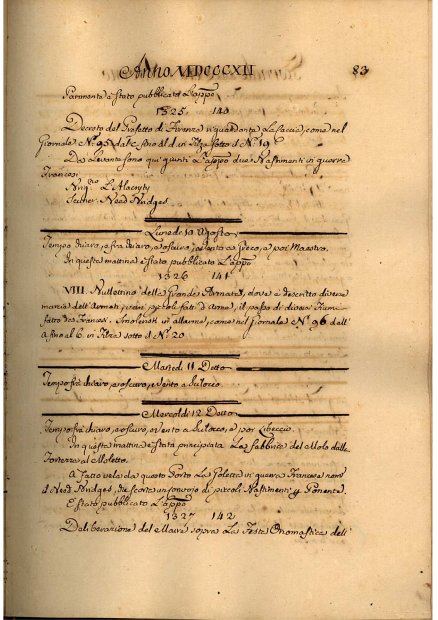 Anno MDCCCXII 83
Parimente è stato pubblicato L'app.o
1325 140
Decreto del Prefetto di Firenze riguardante La Caccia, come nel
Giornale N.o 95 dal c fino al d in Filza sotto d N.o 19
Da Levante sono qui giunti L'app.o due Bastimenti in guerra
Francesi
Brig.o L'Alacrity
Scuner. Need Bridges.
Lunedì 10 Agosto
Tempo chiaro, e fra chiaro, e oscuro, e vento a Greco, e poi Maestro.
In questa mattina è stato pubblicato L'app.o
1326 141
VIII. Bullettino della Grande Armata, dove è descritto diverse
marcie dell'Armati, vari piccoli fatti d'arme, il passo di diversi Fiumi
fatto da Francesi. Smolensk in allarme, come nel Giornale N.o 96 dall'
a fino al 6. in Filza sotto d N.o 20
Martedì 11 Detto
Tempo frà chiaro, e oscuro, e vento a Scilocco
Mercoldì 12 Detto
Tempo frà chiaro, e oscuro, e vento a Scilocco, e poi Libeccio
In questa mattina è stata principiata La fabbrica del Molo dalla
Fortezza al Moletto.
A fatto vela da questo Porto La Goletta in guerra Francese nom.
d Need Bridges, di scorta un convoio di piccoli Bastimenti p Ponente.
È stato pubblicato L'app.o
1327 142
Deliberazione del Maire sopra La Festa Onomastica dell'